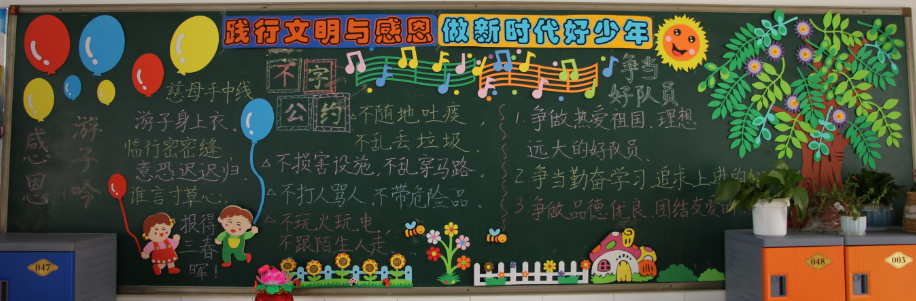 践行文明与感恩 做新时代好少年
感恩
游子吟
慈母手中线
游子身上衣。
临行密密缝
意恐迟迟归
谁言寸草心,
报得
三春
晖!
不字
公约
不随地吐痰,
不乱丢垃圾,
不损害设施,不乱穿马路。
不打人骂人,不带危险品。
不玩火玩电,
不跟陌生人走
争当
好队员
1.争做热爱祖国,理想
远大的好队员。
2.争当勤奋学习,追求上进的
3.争做品德优良,团结友爱的
047
048
003